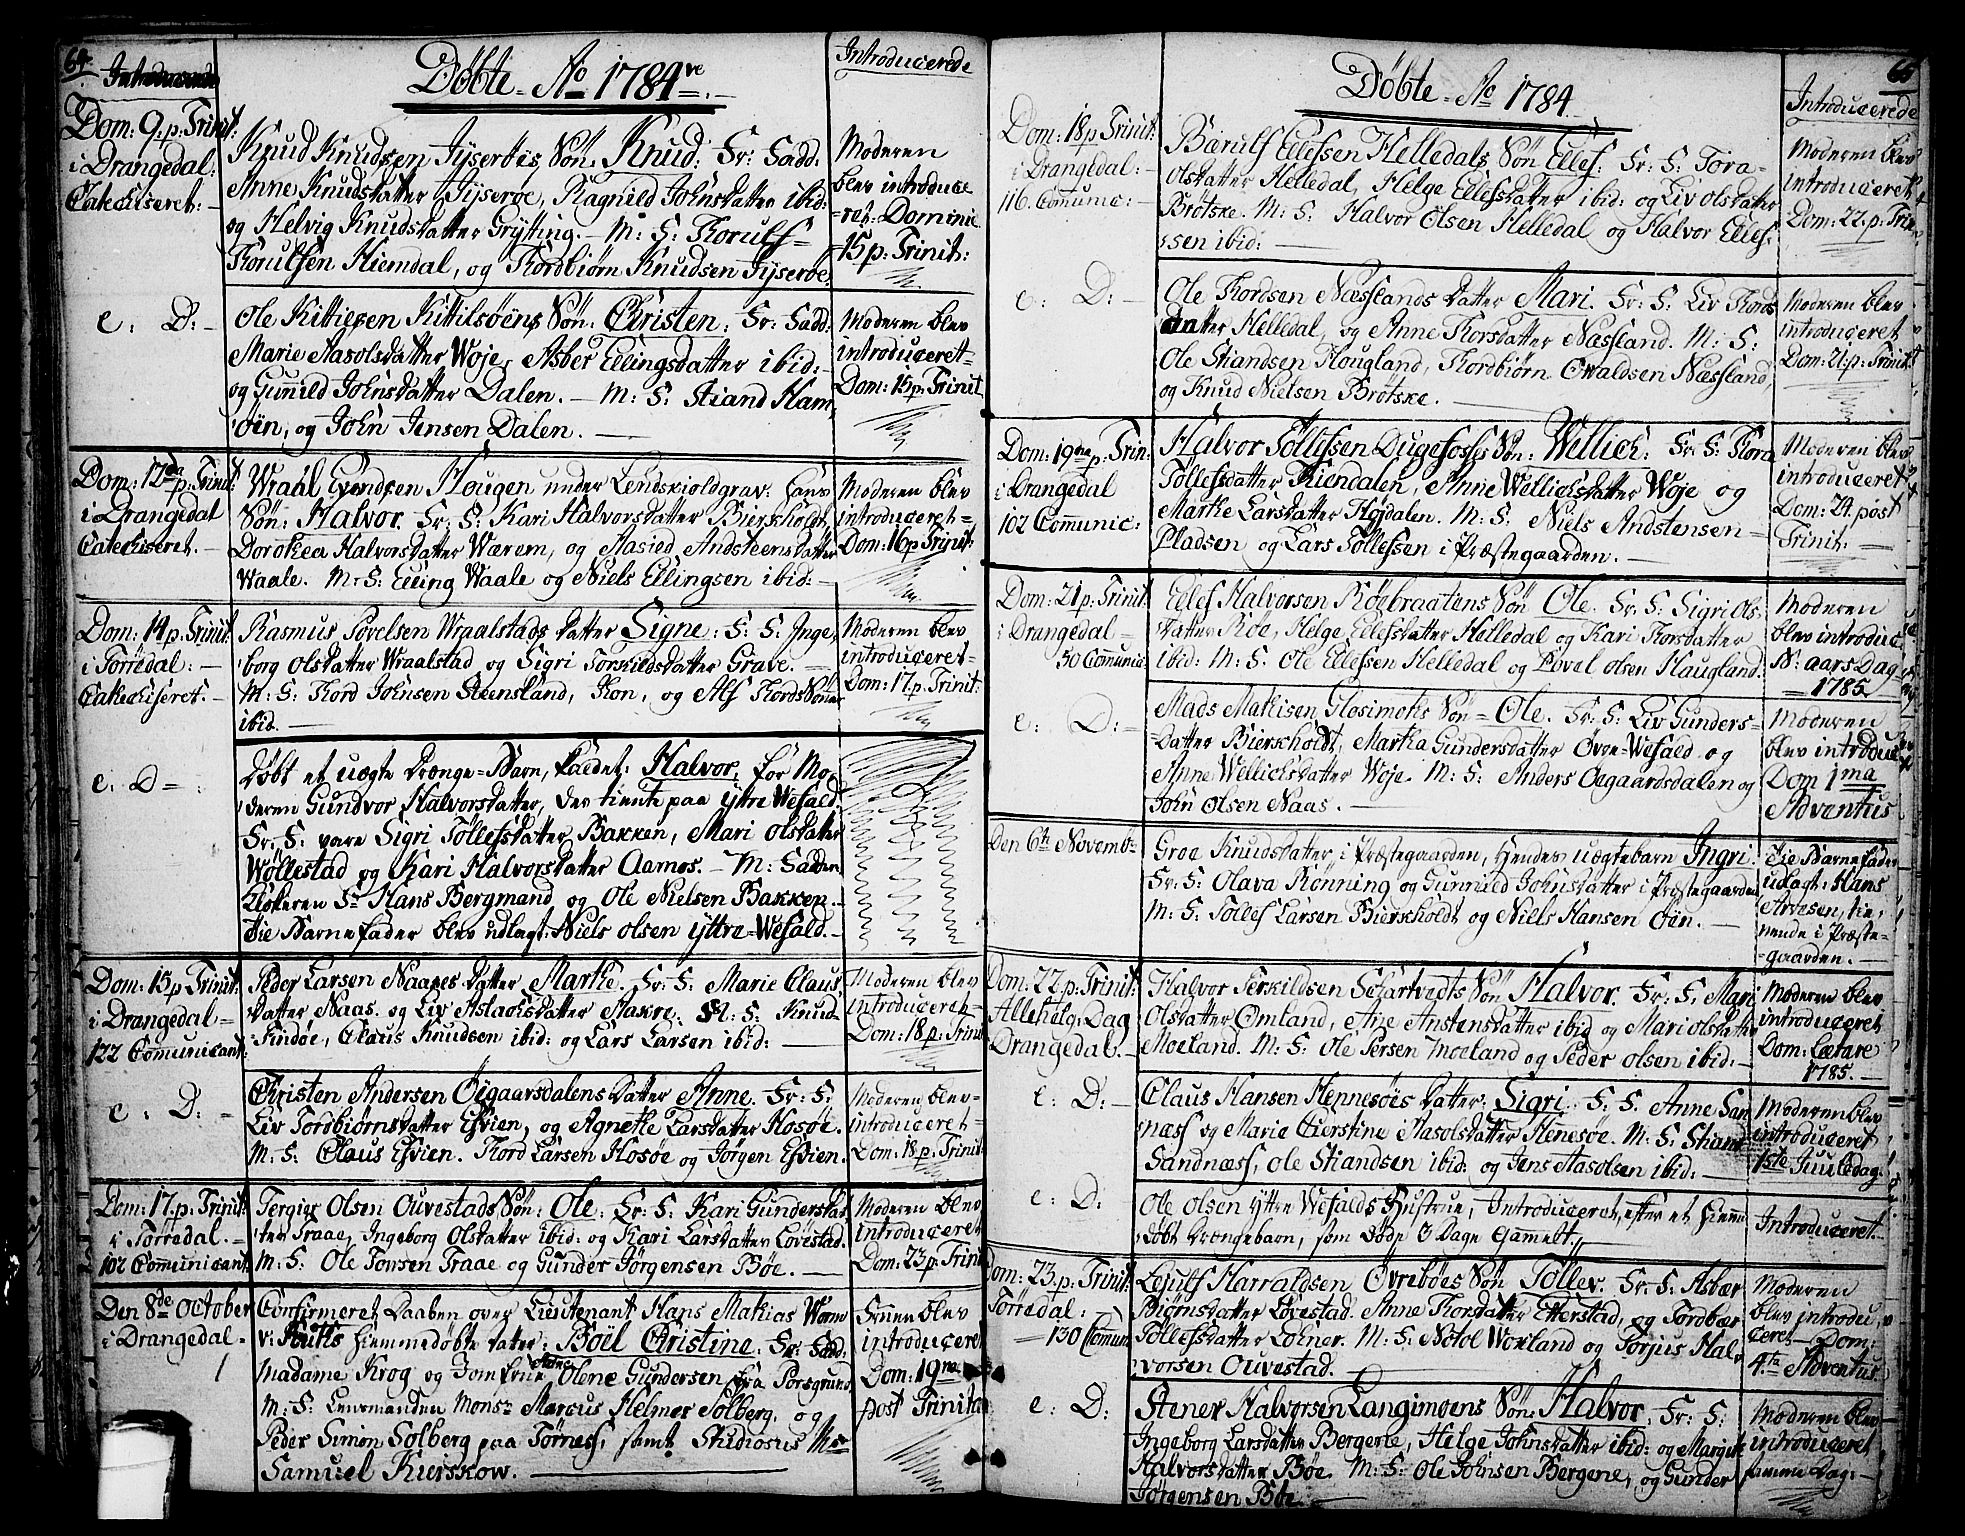 64.
Döbte. Ao 1784ve.
Introducerede
Dom: 9. p. Trinit:
i Drangedal:
Catechiseret:
Knud Knudsen Jyseröis Sön. Knud. Fr: Sadd:
Anne Knudsdatter Jyseröe, Ragnild Johnsdatter ibid:
og Helvig Knudsdatter Grÿtting. M: S: Torulf
Torulfsen Hiemdal, og Tordbiørn Knudsen Jyseröe.
Moderen
blev introduce
=ret: Dominic
15 p: Trinit:
e: D:
Ole Kittilsöens Sön. Christen. Fr: Sadd:
Marie Aasolsdatter Woje, Asber Ellingsdatter ibid:
og Gunnild Johnsdatter Dalen. M: S: Stiand Ham
öen, og John Jensen Dalen.
Moderen blev
introduceret
Dom: 15 p: Trinit
Dom: 17da p: Trinit:
i Drangedal
Catechiseret.
Wraal Hougen under Lendskioldgrav: hans
Sön: Halvor. Fr: S: Kari Halvorsdatter Bierkholdt,
Dorothea Halvorsdatter Wærem, og Aasied Andsteensdatter
Waale. M: S: Elling Waale og Niels Ellingsen ibid:
Moderen blev
introduceret
Dom: 16 p: Trinit:
Dom: 14 p: Trinit:
i Törredal:
Catechiseret.
Rasmus Povelsen Wraalstads datter Signe: F: S: Inge
borg Olsdatter Wraalstad og Sigri Torkildsdatter Grave.
M: S: Tord Johnsen Steensland, Jon, og Alf TordsSönner
ibid.
Moderen blev
introduceret
Dom: 17. p: Trinit:
e: D:
Döbt et uægte Drænge-Barn, kaldet: Halvor, for Mo
deren Gundvor Halvorsdatter, der tiente paa Ÿttre Wefald.
Fr: S: vare Sigri Töllefsdatter Bakken, Mari Olsdatter
Wöllestad og Kari Halvorsdatter Aamos. M: Sadder:
Klokeren Sr Hans Bergmand og Ole Nielsen Bakken.
Til Barnefader blev udlagt Niels Olsen Ÿttre Wefald.
Dom: 15 p Trinit:
i Drangedal
122 Communicant:
Peder Larsen Naases datter Marthe. Fr: S: Marie Claus
datter Naas. og Liv Aslachsdatter Aasen. M: S: Knud
Findöe, Claus Knudsen ibid: og Lars Larsen ibid:
Moderen blev
introduceret
Dom: 18 p: Trinit
e: D:
Christen Andersen Öigaarsdalens datter Anne. Fr: S:
Liv Tordbiørnsdatter Eswien, og Agnethe Larsdatter Hosöe.
M: S: Claus Eswien. Tord Larsen Hosöe og Jörgen Eswien.
Moderen blev
introduceret
Dom: 18. p: Trinit:
Dom: 17. p: Trinit:
i Törredal
102 Communicant:
Tergier Olsen Ouvestads Sön: Ole. Fr: S: Kari Gundersdat
ter Traae, Ingeborg Olsdatter ibid: og Kari Larsdatter Lövestad.
M: S: Ole Tovsen Traae og Gunder Jörgensen Böe.
Moderen blev
introduceret
Dom: 23. p: Trinit
Den 8de October
i Drangedal
Confirmeret Daaben over Lieutenant Hans Mathias Worm
hiemmedöbte datter: Boel Christine. Fr: Sadd:
Madame Krog og Jomfrue Olene Gundersen fra Porsgrund
M: S: Lensmanden Monsr Marcus Helmer Solberg, og
Peder Simon Solberg paa Törnes, samt Studiosus Mr
Samuel Kierskow.
Fruen blev
introduceret
Dom: 19na
post Trinitat:
65
Döbte. Ao 1784
Introducerede
Dom: 18. p Trinit:
i Drangedal:
116. Comunic:
Barulf Ellefsen Helledals Sön Ellef. Fr: S: Tora
Olsdatter Helledal, Helge Ellefsdatter ibid: og Liv Olsdatter
Brötske. M: S: Halvor Olsen Helledal og Halvor Ellef
sen ibid:
Moderen blev
introduceret
Dom: 22. p: Trin
e: D:
Ole Tordsen Næsslands datter Mari. Fr: S: Liv Tords
datter Helledal, og Anne Torsdatter Næssland. M: S:
Ole Stiandsen Hougland, Tordbiörn Owaldsen Næssland
og Knud Nielsen Brötske.
Moderen blev
introduceret
Dom: 21. p: Trinit
Dom: 19na p: Trin:
i Drangedal
102 Communic:
Halvor Töllefsen Dugefosses Sön: Wellich. Fr: S: Tora
Töllefsdatter Kiendalen, Anne Wellichsdatter Woje og
Marthe Larsdatter Höjdalen. M: S: Niels Andstensen
Pladsen og Lars Töllefsen i Præstegaarden.
Moderen blev
introduceret
Dom: 24. post
Trinit:
Dom: 21. p: Trinit:
i Drangedal
50 Communic:
Ellef Halvorsen Röebraatens Sön Ole. Fr: S: Sigri Ols
datter Röe, Helge Ellefsdatter Helledal og Kari Torsdatter
ibid: M: S: Ole Ellefsen Helledal og Povel Olsen Haugland.
Moderen
blev introduc
N: aars Dag
1785.
e: D:
Mads Mathisen Glosimots Sön Ole. Fr: S: Liv Gunders
datter Bierkholdt, Martha Gundersdatter Övre-Wefald og
Anne Wellichsdatter Woje. M: S: Anders Oegaardsdalen og
John Olsen Naas.
Moderen
blev introduc
Dom 1ma
Adventus
Den 6te Novembr
Groe Knudsdatter, i Præstegaarden, hendes uægtebarn Ingri.
Fr: S: Olava Rönning og Gunnild Johnsdatter i Præstegaarden
M: S: Tollef Larsen Bierkholdt og Niels Hansen Öen.
Til Barnefader
udlagt: Hans
Arvesen, tie
nende i Præste
gaarden.
Dom: 22. p: Trinit:
Allehelg: Dag
Drangedal.
Halvor Terkildsen Schartvedts Sön Halvor. Fr: S: Mari
Olsdatter Omland, Anstensdatter ibid og Mari Olsdatter
Moeland. M: S: Ole Persen Moeland og Peder Olsen ibid:
Moderen blev
introduceret
Dom: Lætare
1785.
e: D:
Claus Hansen Hennesöes datter: Sigri. F: S. Anne San
næss og Marie Cierstine Aasolsdatter Henesöe. M: S: Stian
Sandnæss, Ole Stiandsen ibid: og Jens Aasolsen ibid:
Moderen blev
introduceret
1ste Juuledag.
e: D:
Ole Olsen Ÿttre Wefalds Hustrue, Introduceret, efter et hiemme
döbt Drængebarn, som döde 8 Dage gammelt.
Introduceret.
Dom: 23. p: Trinit:
Törredal:
130 Comun
Lejulf Harraldsen Övreböes Sön Töllev. Fr: S: Asbær
Biörnsdatter Lövestad. Anne Torsdatter Etterstad, og Tordbær
Töllefsdatter Lolner. M: S: Notol Woxland og Torjus Hal
vorsen Ouvestad.
Moderen
blev introdu
ceret Dom:
4ta Adventus
e: D:
Stener Halvorsen Langimoens Sön: Halvor. Fr: S:
Ingeborg Larsdatter Bergene, Helge Johnsdatter ibid: og Margit
Halvorsdatter Böe. M: S: Ole Johnsen Bergene, og Gunder
Jörgensen Böe.
Moderen blev
introduceret
samme Dag: